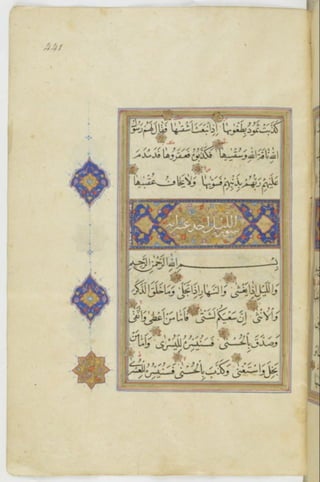 كَذَّبَتْ ثَمُودُ بِطَغْوٰىهَا إِذِ انْبَعَثَ أَشْقٰىهَا فَقَالَ لَهُمْ رَسُولُ
اللهِ نَاقَةَ اللهِ وَسُقْيٰهَا فَكَذَّبُوهُ فَعَقَرُوهَا فَدَمْدَمَ
عَلَيْهِمْ رَبُّهُمْ بِذَنْبِهِمْ فَسَوّٰىهَا وَلَا يَخَافُ عُقْبٰىهَا
سورة الليل
بِسْمِ اللهِ الرَّحْمٰنِ الرَّحِيمِ
وَاللَّيْلِ إِذَا يَغْشٰى وَالنَّهَارِ إِذَا تَجَلّٰى وَمَا خَلَقَ الذَّكَرَ
وَالْأُنْثٰى إِنَّ سَعْيَكُمْ لَشَتّٰى فَأَمَّا مَنْ أَعْطٰى وَاتَّقٰى
وَصَدَّقَ بِالْحُسْنٰى فَسَنُيَسِّرُهُ لِلْيُسْرٰى وَأَمَّا مَنْ
بَخِلَ وَاسْتَغْنٰى وَكَذَّبَ بِالْحُسْنٰى فَسَنُيَسِّرُهُ لِلْعُسْرٰى